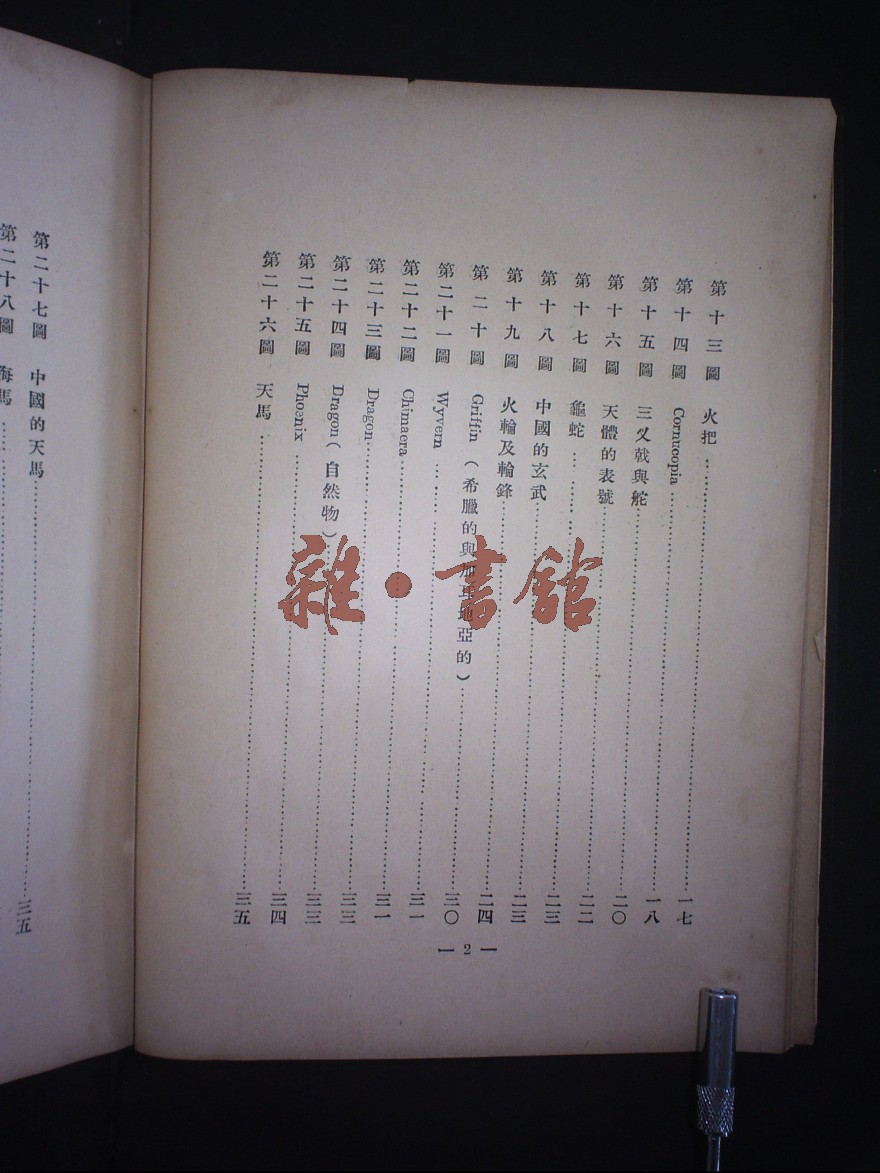 第十三圖 火把……一七
第十四圖 Corntcopia……一八
第十五圖 三叉戟與舵……二〇
第十六圖 天體的表號……二二
第十七圖 龜蛇……二三
第十八圖 中國的玄武……二三
第十九圖 火輪及輪鋒……二四
第二十圖 Griffin（希臘的與地亞的）……三〇
第二十一圖 Wyvern……三一
第二十二圖 Chimaera……三一
第二十三圖 Dragon……三三
第二十四圖 Dragon（自然物）……三三
第二十五圖 Phoenix……三四
第二十六圖 天馬……三五
— 2 —
第二十七圖 中國的天馬……三五
第二十八圖 海馬……
雜·書館